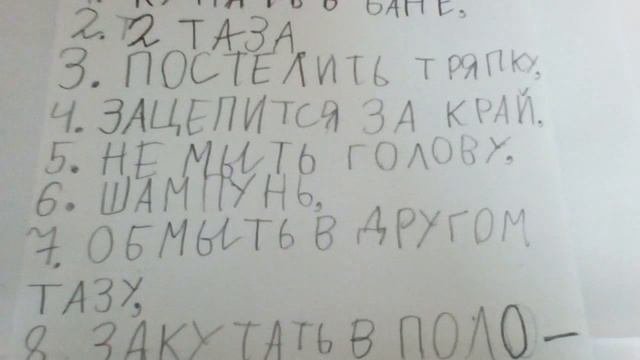 1. КУПАТЬ В БАНЕ,
2. 2 ТАЗА
3. ПОСТЕЛИТЬ ТРЯПКУ,
4. ЗАЦЕПИТСЯ ЗА КРАЙ.
5. НЕ МЫТЬ ГОЛОВУ,
6. ШАМПУНЬ,
7. ОБМЫТЬ В ДРУГОМ
ТАЗУ,
8. ЗАКУТАТЬ В ПОЛО-